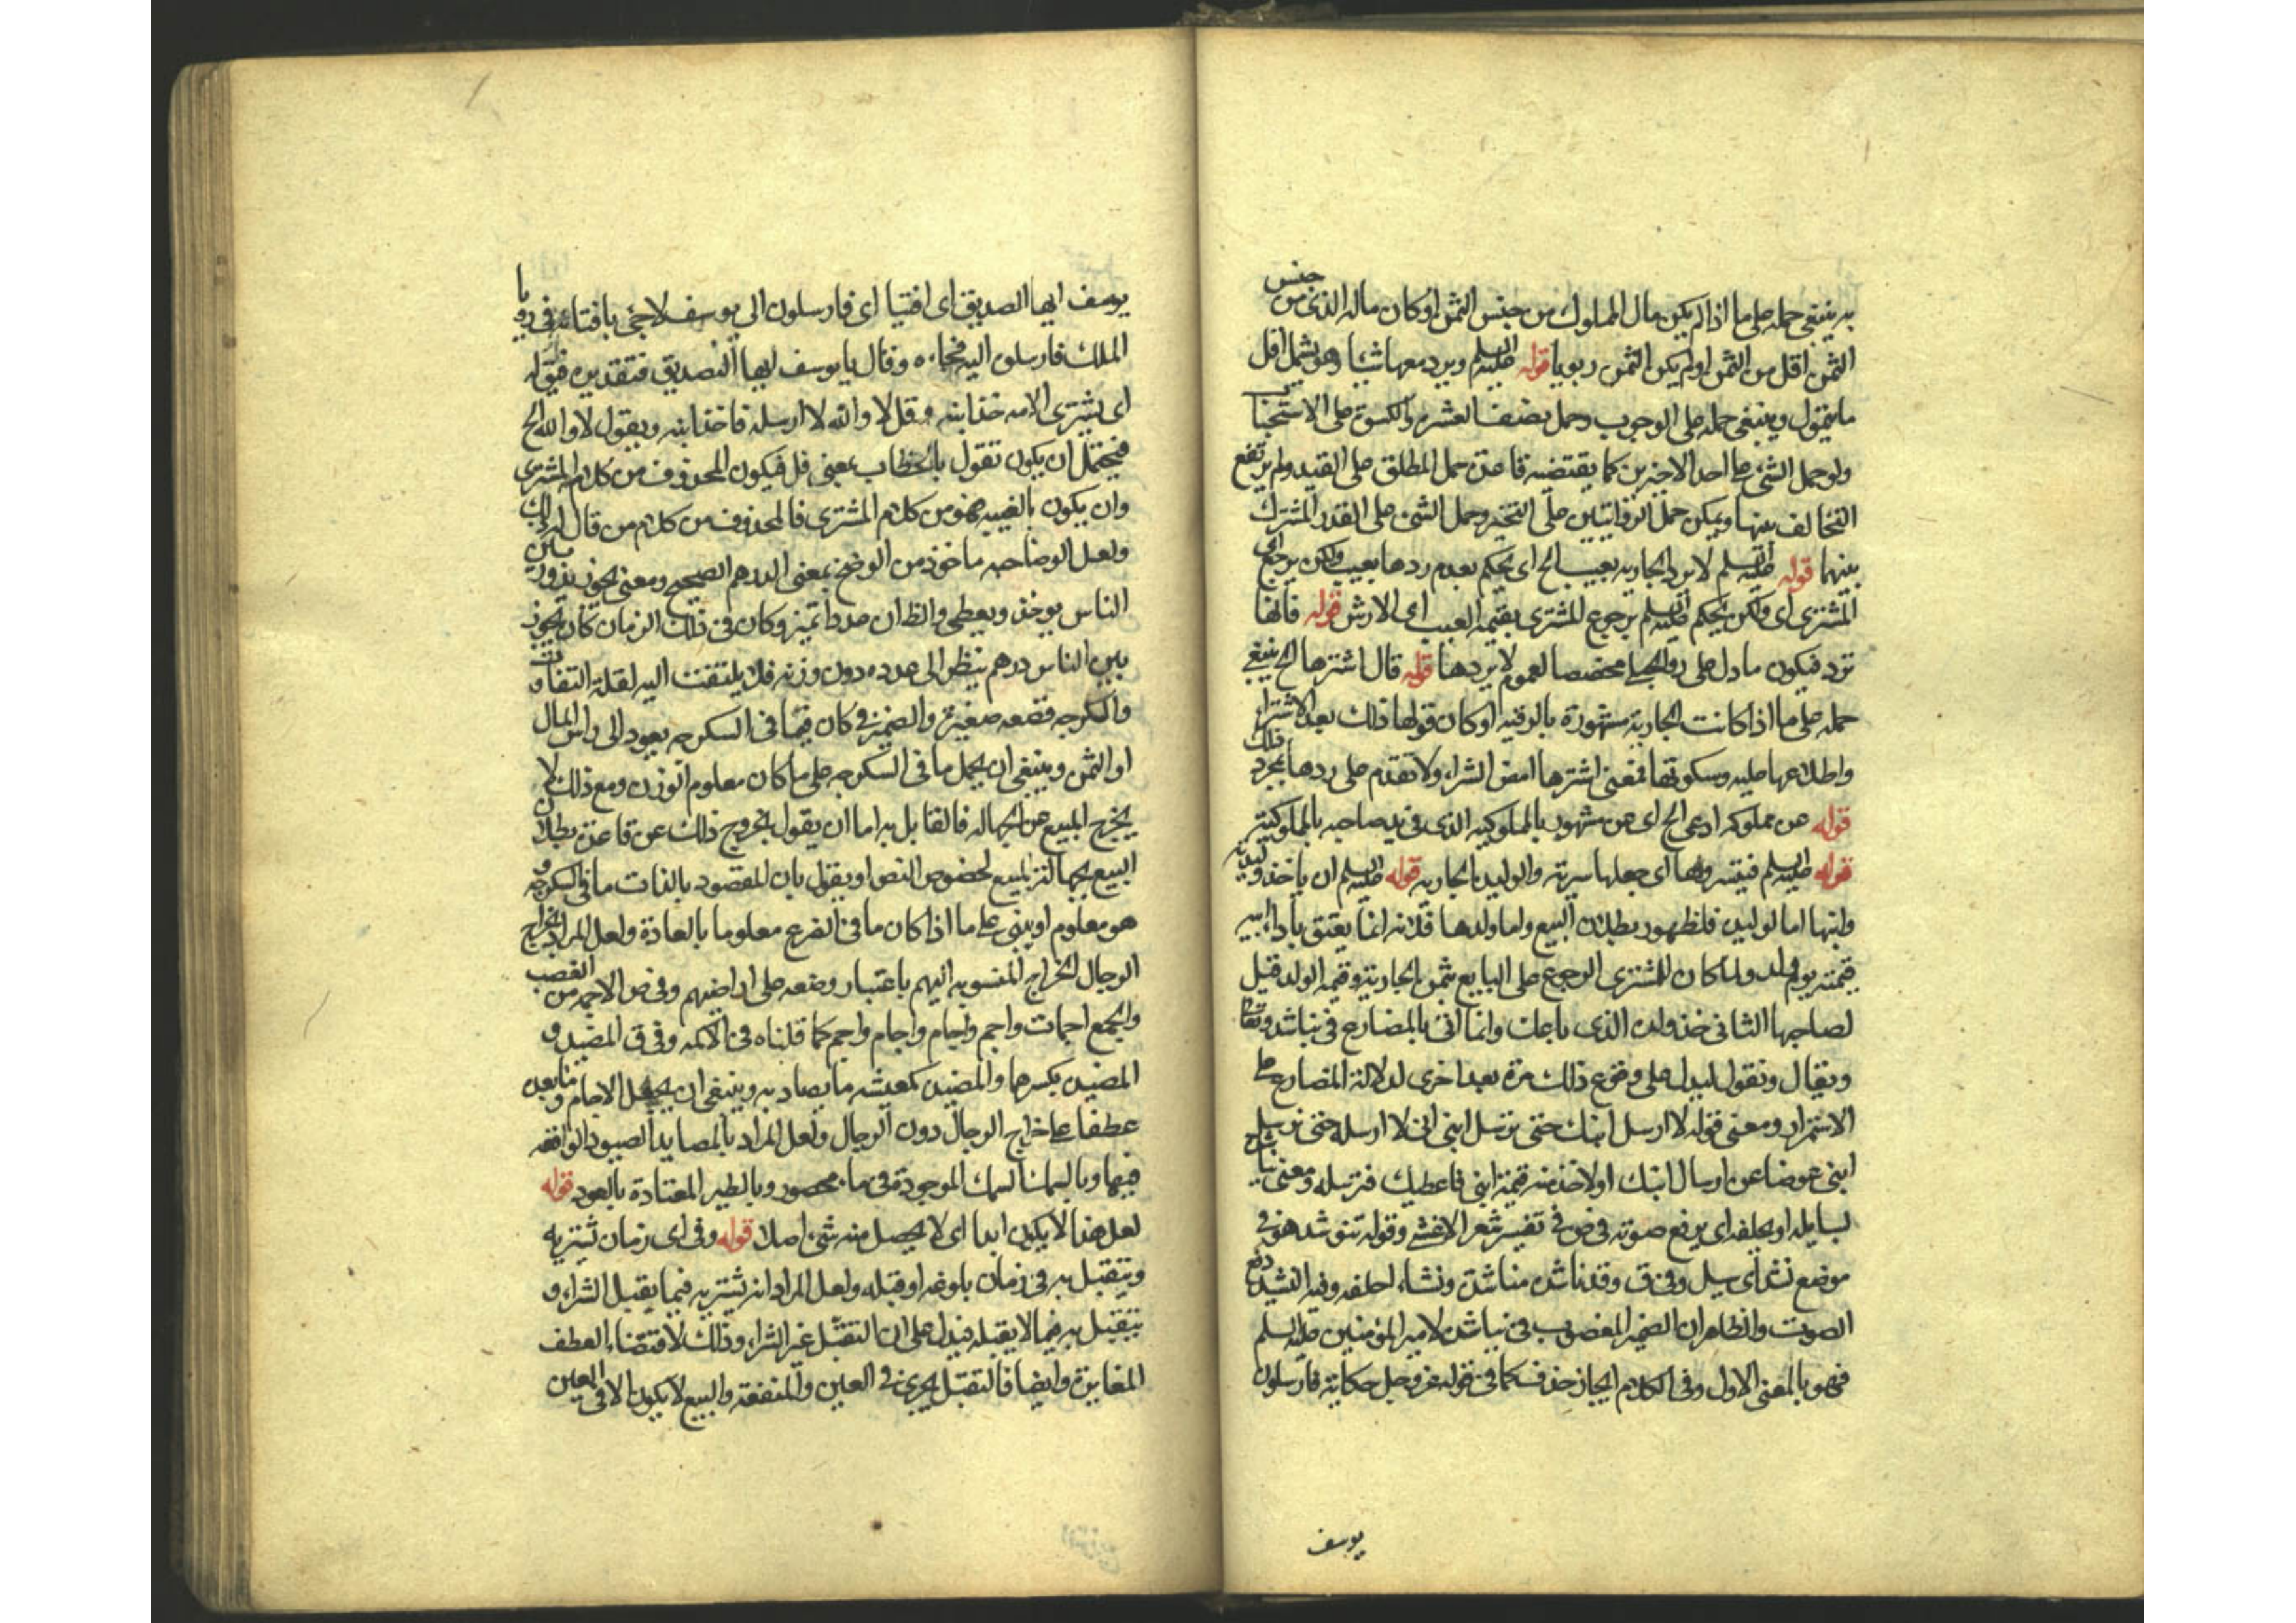 به ينبغى حمله على ما اذا لم يكن مال المملوك من جنس الثمن او كان ماله الذى من جنس
الثمن اقل من الثمن او لم يكن الثمن ربويا قوله عليه السلم ويرد معها شيئا وهو يشمل اقل
ما يتمول وينبغى حمله على الوجوب وحمل نصف العشر والكسوة على الاستحبا
ولو حمل الشئ على احد الاخيرين كما يقتضيه قاعدة حمل المطلق على المقيد ولم يرتفع
التخالف بينها ويمكن حمل الروايتين على التخيير وحمل الشئ على القدر المشترك
بينهما قوله عليه السلم لا يرد الجارية بعيب الخ اى يحكم بعدم ردها بعيب ولكن يرجع اى
المشترى اى ولكن يحكم عليه السلم برجوع المشترى بقيمة العيب اى الارش قوله فانها
ترد فيكون ما دل على رد الحبلى مخصصا لعموم لا يردها قوله قال اشترها الخ ينبغى
حمله على ما اذا كانت الجارية مشهورة بالرقية او كان قولها ذلك بعد الاشتراء
واطلاعها عليه وسكوتها فمعنى اشترها امض الشراء ولا تقدم على ردها بمجرد ذلك
قوله عن مملوكه ادعى الخ اى عن مشهور بالمملوكية الذى فى يد صاحبه بالمملوكية
قوله عليه السلم فيتسريها اى جعلها سرية والوليدة الجارية قوله عليه السلم ان ياخذ وليدته
وابنها اما الوليدة فلظهور بطلان البيع واما ولدها فلانه انما يعتق باداء ابيه
قيمته يوم ولد ولما كان للمشترى الرجوع على البايع بثمن الجارية وقيمة الولد قيل
لصاحبها الثانى خذ ولده الذى باعك وانما اتى بالمضارع فى يناشد
ويقال ويقول ليدل على وقوع ذلك مرة بعد اخرى لدلالة المضارع على
الاستمرار ومعنى قوله لا ارسل ابنك حتى ترسل ابنى انى لا ارسله حتى ترسل
ابنى عوضا عن ارسال ابنك او لاخذ منه قيمة ابنى فاعطيك فترسله ومعنى
لسايله او يحلفه اى يرفع صوته فى ص فى تفسير شعر الاعشى وقوله تنوشد هو فى
موضع نشد اى سيل وفى ق وقد ناشده مناشدة ونشاء احلفه وفيه النشيد رفع
الصوت والظاهر ان الضمير المنصوب فى يناشده لامير المؤمنين عليه السلم
فهو بالمعنى الاول وفى الكلام ايجاز حذف كما فى قوله عز وجل حكاية فارسلون
يوسف
يوسف ايها الصديق اى افتيا اى فارسلون الى يوسف لاجئ بافتائه فى رويا
الملك فارسلوه اليه فجاءه وقال يا يوسف ايها الصديق فتقديره فيقوله
اى يشترى الامة خذ ابنه وقل لا والله لا ارسله فاخذ ابنه ويقول لا والله الخ
فيحتمل ان يكون تقول بالخطاب بمعنى قل فيكون المحذوف من كلام المشترى
وان يكون بالغيبة فهو من كلام المشترى فالمحذوف من كلام من قال له ذلك
ولعل الوضاحيه ماخوذ من الوضح بمعنى الدرهم الصحيح ومعنى يجوز يدور بين
الناس يوخذ ويعطى والظ ان عددا تميز وكان فى ذلك الزمان كان يجوز
بين الناس درهم ينظر الى عدده دون وزنه فلا يلتفت اليه لقلة التفاوت
والسكرجه قصعه صغيرة والضمير فى كان فيما فى السكرجه يعود الى راس المال
او الثمن وينبغى ان يحمل ما فى السكرجه على ما كان معلوم الوزن ومع ذلك لا
يخرج المبيع عن الجهالة فالقابل به اما ان يقول بخروج ذلك عن قاعدة بطلان
البيع بجهالة المبيع لخصوص النص او يقول بان المقصود بالذات ما فى السكرجه و
هو معلوم او يبنى على ما اذا كان ما فى الضرع معلوما بالعادة ولعل المراد بخراج
الرجال الخراج المنسوب اليهم باعتبار وضعه على اراضيهم وفى ص الاجمة من القصب
والجمع اجمات واجم واجام واجام واجم كما قلناه فى الاكمة وفى ق المصيد و
المصيد بكسرهما والمصيدة كمعيشة ما يصاد به وينبغى ان يجعل الاجام وما بعده
عطفا على خراج الرجال دون الرجال ولعل المراد بالمصايد الصيود الواقعة
فيها وبالسمك السمك الموجودة فى ماء محصور وبالطير المعتادة بالعود قوله
لعل هذا لا يكون ابدا اى لا يحصل منه شئ اصلا قوله وفى اى زمان يشتريه
ويتقبل به فى زمان بلوغه او قبله ولعل المراد انه يشتريه فيما يقبل الشراء و
يتقبل به فيما لا يقبله فيدل على ان التقبل غير الشراء وذلك لاقتضاء العطف
المغايرة وايضا فالتقبل يجرى فى العين والمنفعة والبيع لا يكون الا فى العين